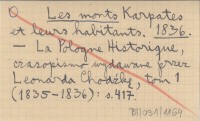 Les monts Karpates
et leurs habitants. 1836.
— La Pologne Historique,
czasopismo wydawane przez
Leonarda Chodźkę, tom 1
(1835-1836): s. 417.